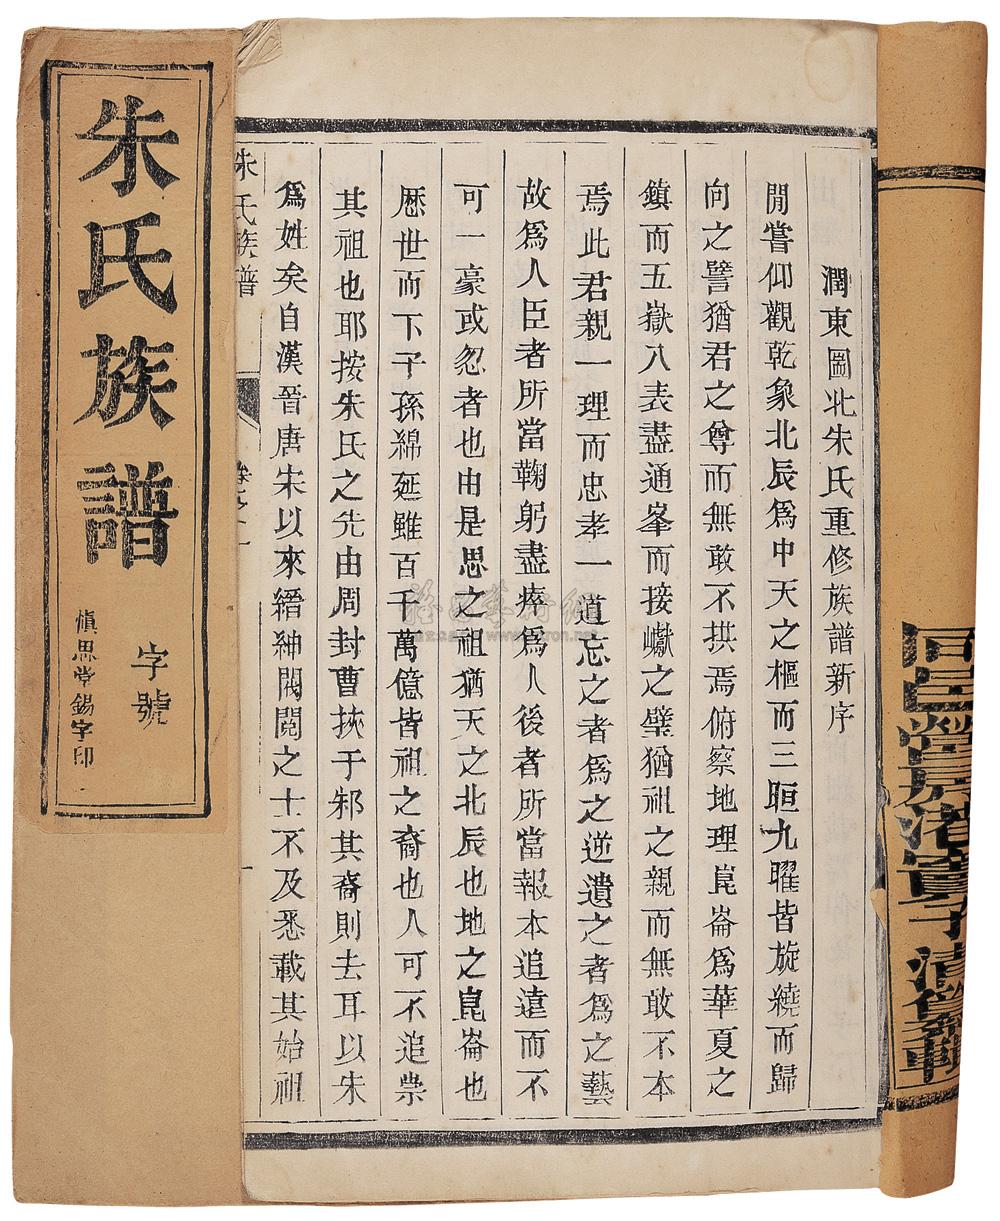 朱氏族譜
字號
慎思堂錫字印
潤東圌北朱氏重修族譜新序
閒嘗仰觀乾象北辰爲中天之樞而三垣九曜皆旋繞而歸
向之譬猶君之尊而無敢不拱焉俯察地理崑崙爲華夏之
鎮而五嶽八表盡通峯而接巘之壁猶祖之親而無敢不本
焉此君親一理而忠孝一道忘之者爲之逆遺之者爲之藝
故爲人臣者所當鞠躬盡瘁爲人後者所當報本追遠而不
可一豪或忽者也由是思之祖猶天之北辰也地之崑崙也
歷世而下子孫綿延雖百千萬億皆祖之裔也人可不追祟
其祖也耶按朱氏之先由周封曹挾于邾其裔則去耳以朱
爲姓矣自漢晉唐宋以來縉紳閥閱之士不及悉載其始祖
朱氏族譜
卷之一
同邑營房渚
子清修輯